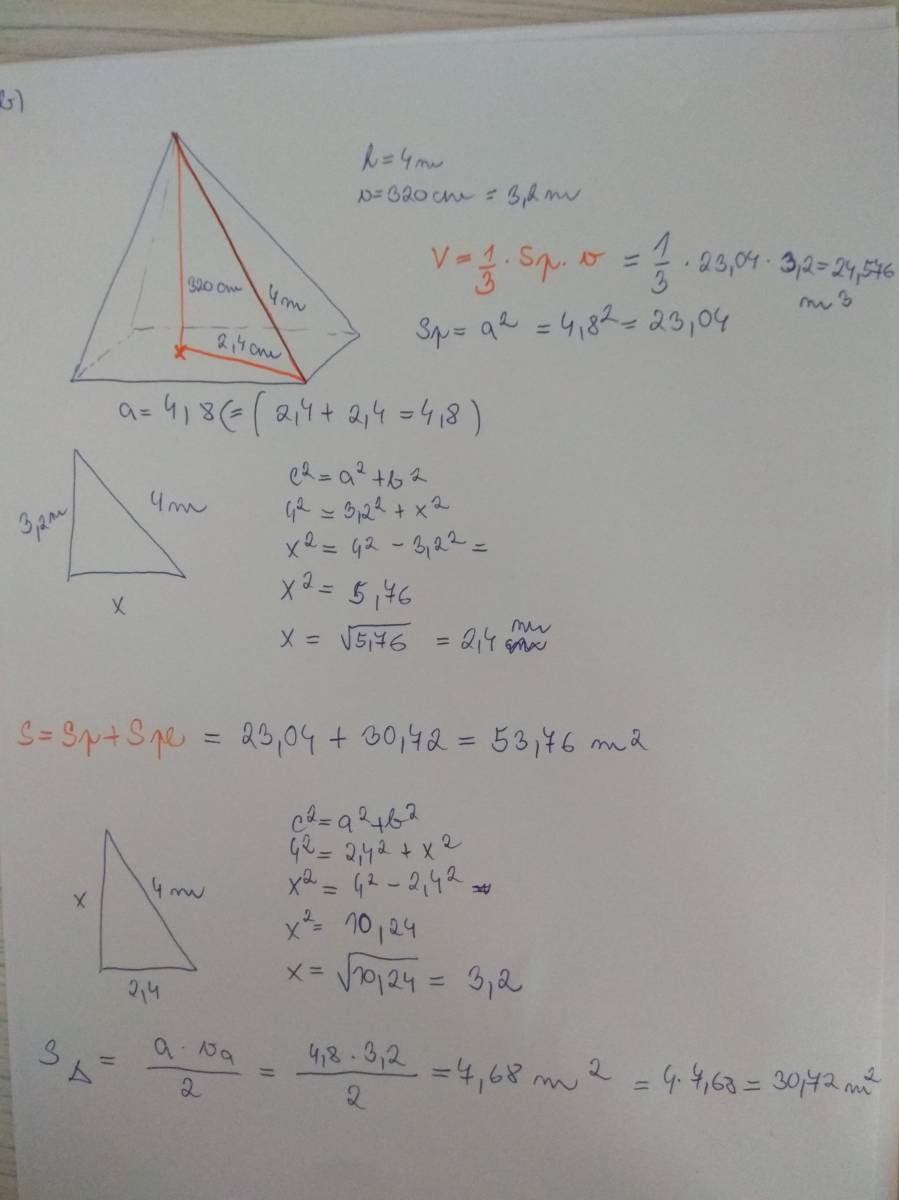 b)
h = 4 m
v = 320 cm = 3,2 m
V = 1/3 · Sp · v = 1/3 · 23,04 · 3,2 = 24,576 m3
Sp = a² = 4,8² = 23,04
320 cm
4 m
2,4 cm
x
a = 4,8 (= ( 2,4 + 2,4 = 4,8 )
3,2 m
4 m
x
c² = a² + b²
4² = 3,2² + x²
x² = 4² - 3,2² =
x² = 5,76
x = √5,76 = 2,4 m
S = Sp + Spl = 23,04 + 30,72 = 53,76 m2
x
4 m
2,4
c² = a² + b²
4² = 2,4² + x²
x² = 4² - 2,4²
x² = 10,24
x = √10,24 = 3,2
S△ = a · va / 2 = 4,8 · 3,2 / 2 = 7,68 m² = 4 · 7,68 = 30,72 m²